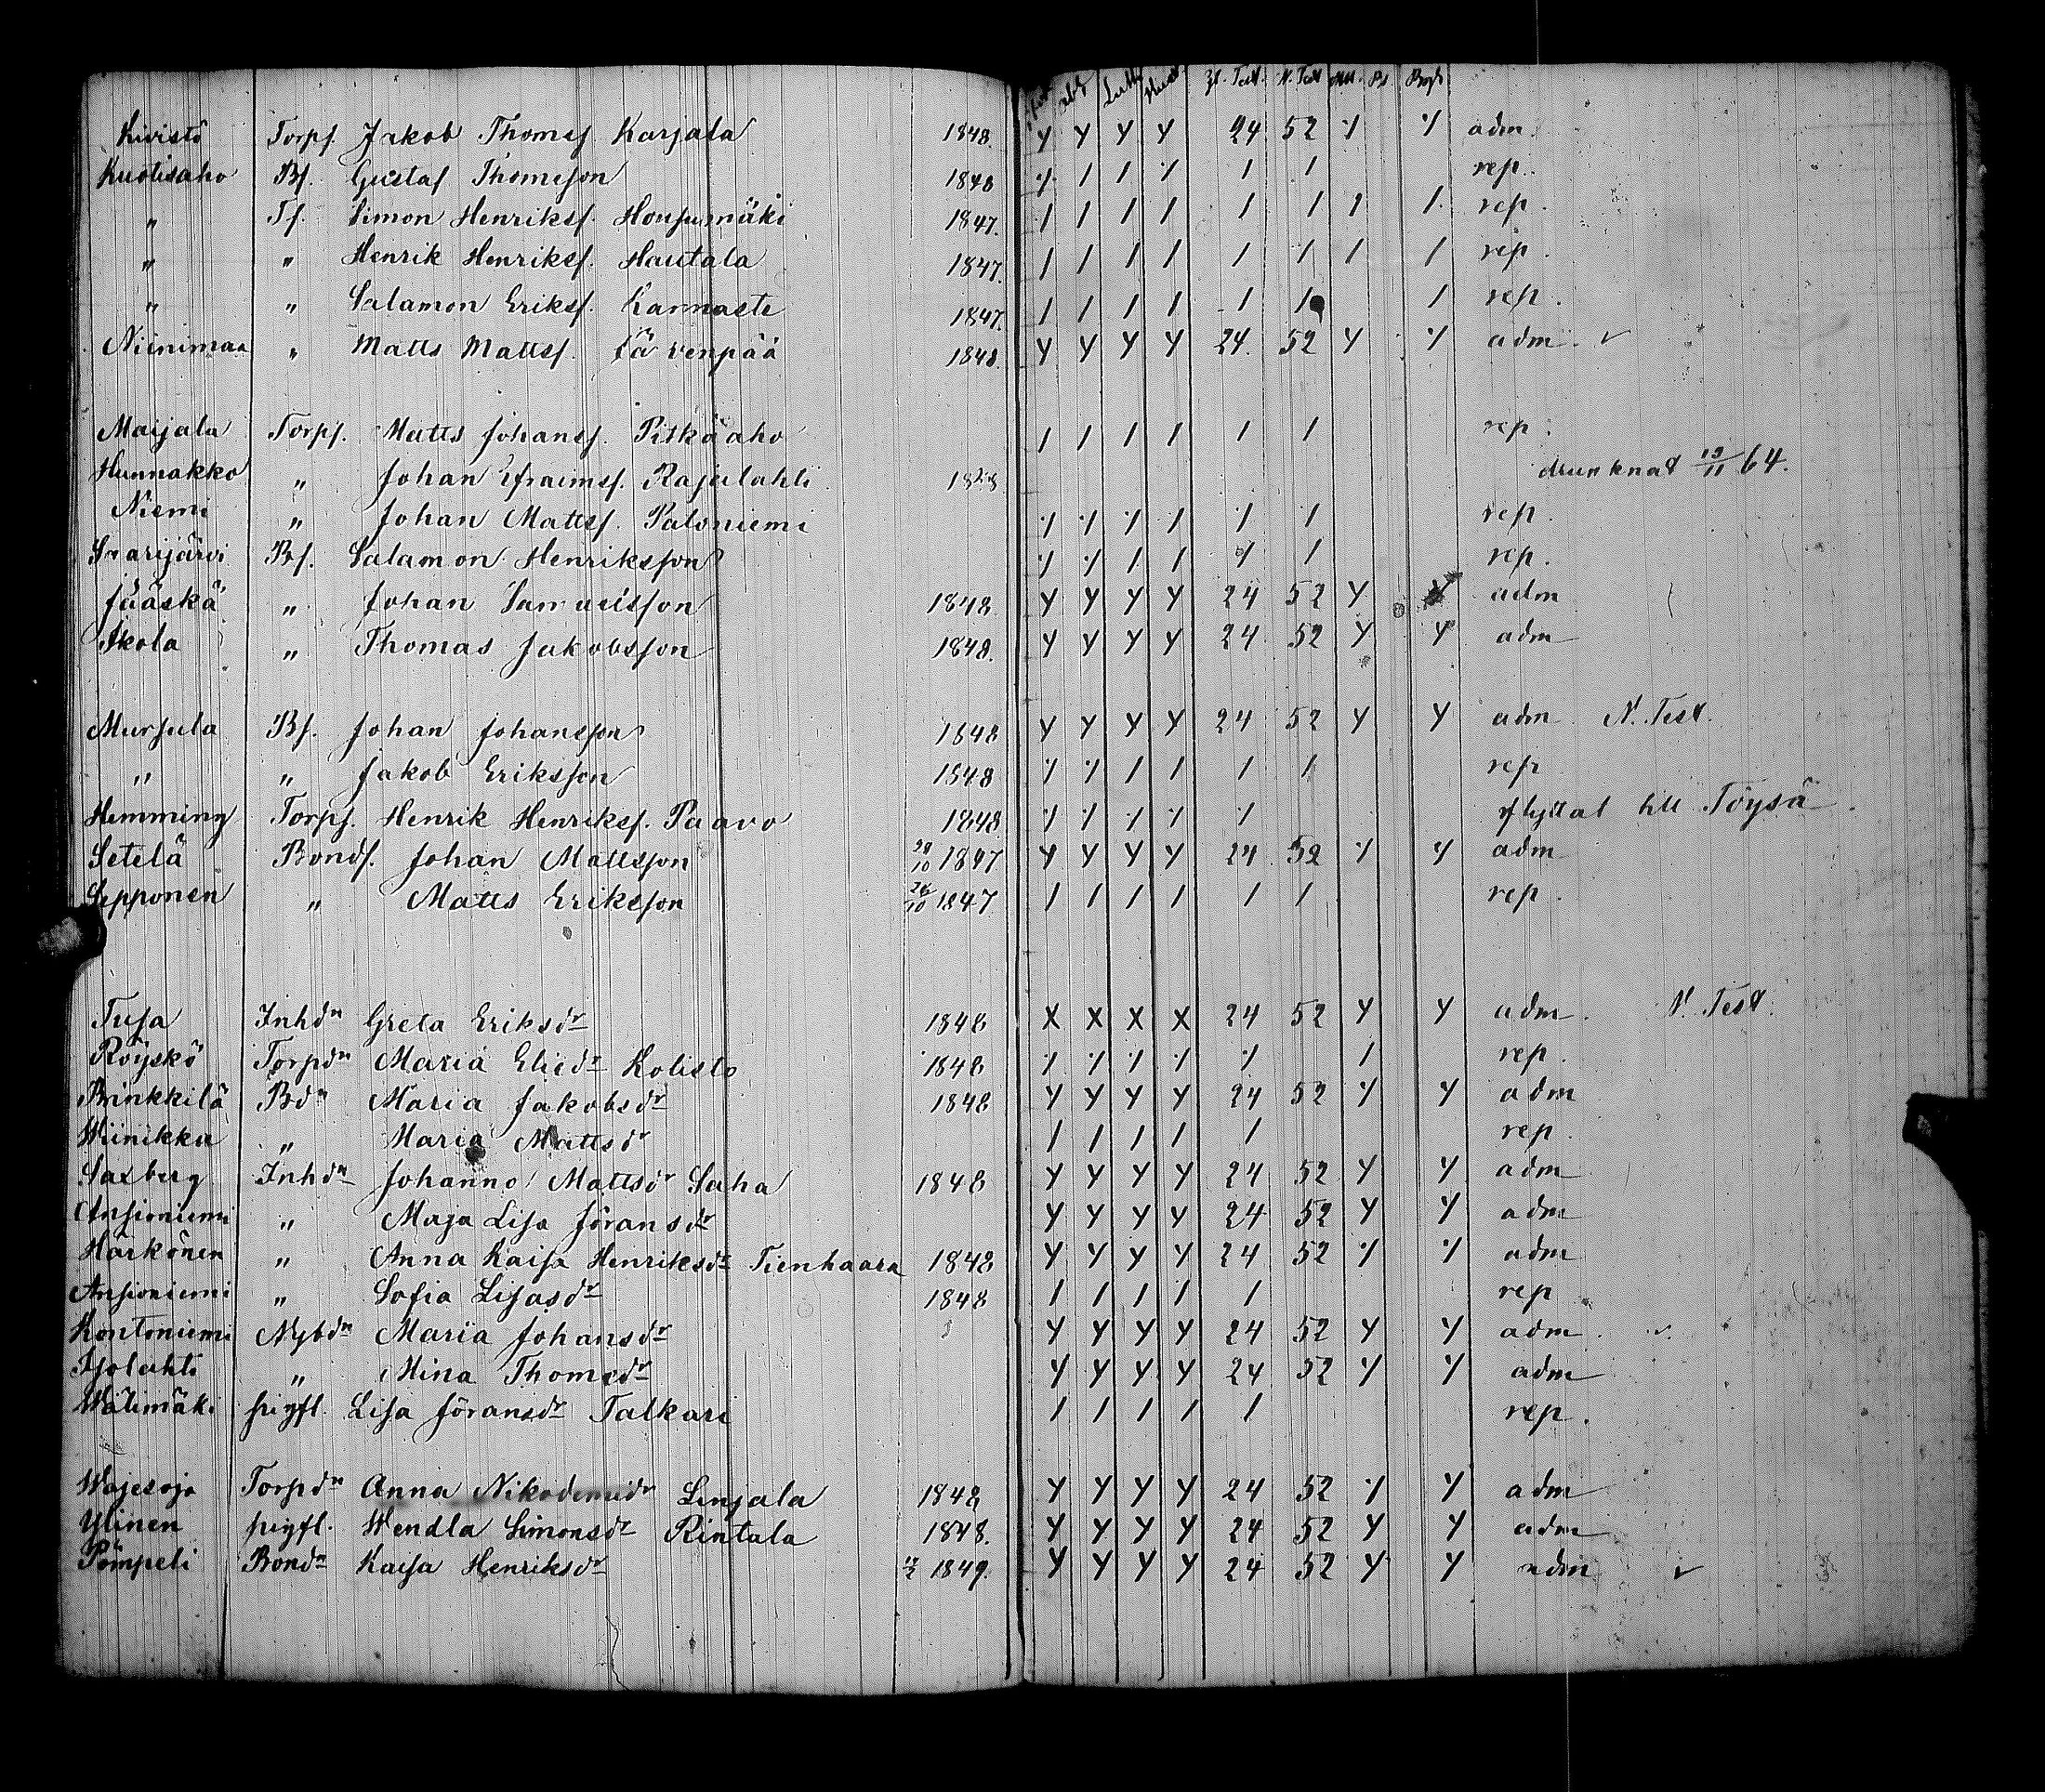 Gl. Test. N. Test
Kivistö Torpf. Jakob Thomsf. Karjala 1848. Y Y Y Y 24 52 Y Y adm.
Kuotisaho Bf. Gustaf Thomsson 1848 / / / / / / rep.
" Tf. Simon Henriksf. Housumäki 1847. / / / / / / / / rep.
" " Henrik Henriksf. Hautala 1847. / / / / / / / / rep.
" " Salamon Eriksf. Kannaste 1847. / / / / / / / rep.
Niinimaa " Matts Mattsf. Järvenpää 1848. Y Y Y Y 24. 52 Y Y adm.
Maijala Torpf. Matts Johansf. Pitkäaho / / / / / / rep.
Hunnakko " Johan Efraimsf. Rajulahti 1828 drunknat 13/11 64.
Niemi " Johan Mattsf. Paloniemi / / / / / / rep.
Saarijärvi Bf. Salamon Henriksson / / / / / / rep.
Jääskä " Johan Samuelsson 1848 Y Y Y Y 24 52 Y Y adm
Akola " Thomas Jakobsson 1848. Y Y Y Y 24 52 Y Y adm
Mursula Bf. Johan Johansson 1848 Y Y Y Y 24 52 Y Y adm. N. Test.
" " Jakob Eriksson 1848 / / / / / / rep
Hemming Torpf. Henrik Henriksf. Paavo 1848 / / / / / flyttat till Töysä.
Setelä Bondf. Johan Mattsson 1847 Y Y Y Y 24 52 Y Y adm
Sepponen " Matts Eriksson 26/10 1847 / / / / / / rep.
Tusa Inhdn Greta Eriksdr 1848 X X X X 24 52 Y Y adm. N. Test.
Röyskö Torpdn Maria Eliedr Kolisto 1848 / / / / / / rep.
Brinkkilä Bdn Maria Jakobsdr 1848 Y Y Y Y 24 52 Y Y adm
Wiinikka " Maria Mattsdr / / / / / rep.
Saxberg Inhdn Johanna Mattsdr Saha 1848 Y Y Y Y 24 52 Y Y adm
Ansioniemi " Maja Lisa Göransdr Y Y Y Y 24 52 Y Y adm
Härkönen " Anna Kaisa Henriksdr Tienhaara 1848 Y Y Y Y 24 52 Y Y adm
Ansioniemi " Sofia Lisasdr 1848 / / / / / rep
Kontoniemi Nybdn Maria Johansdr Y Y Y Y 24 52 Y Y adm.
Isolahti " Mina Thomsdr Y Y Y Y 24 52 Y Y adm
Wälimäki pigfl. Lisa Göransdr Talkari / / / / / rep.
Torpdn Anna Nikodemidr 1848 Y Y Y Y 24 52 Y Y adm
Ylinen pigfl. Wendla Simonsdr Rintala 1848. Y Y Y Y 24 52 Y Y adm
Pömpeli Bondn Kaisa Henriksdr 1849. Y Y Y Y 24 52 Y Y adm